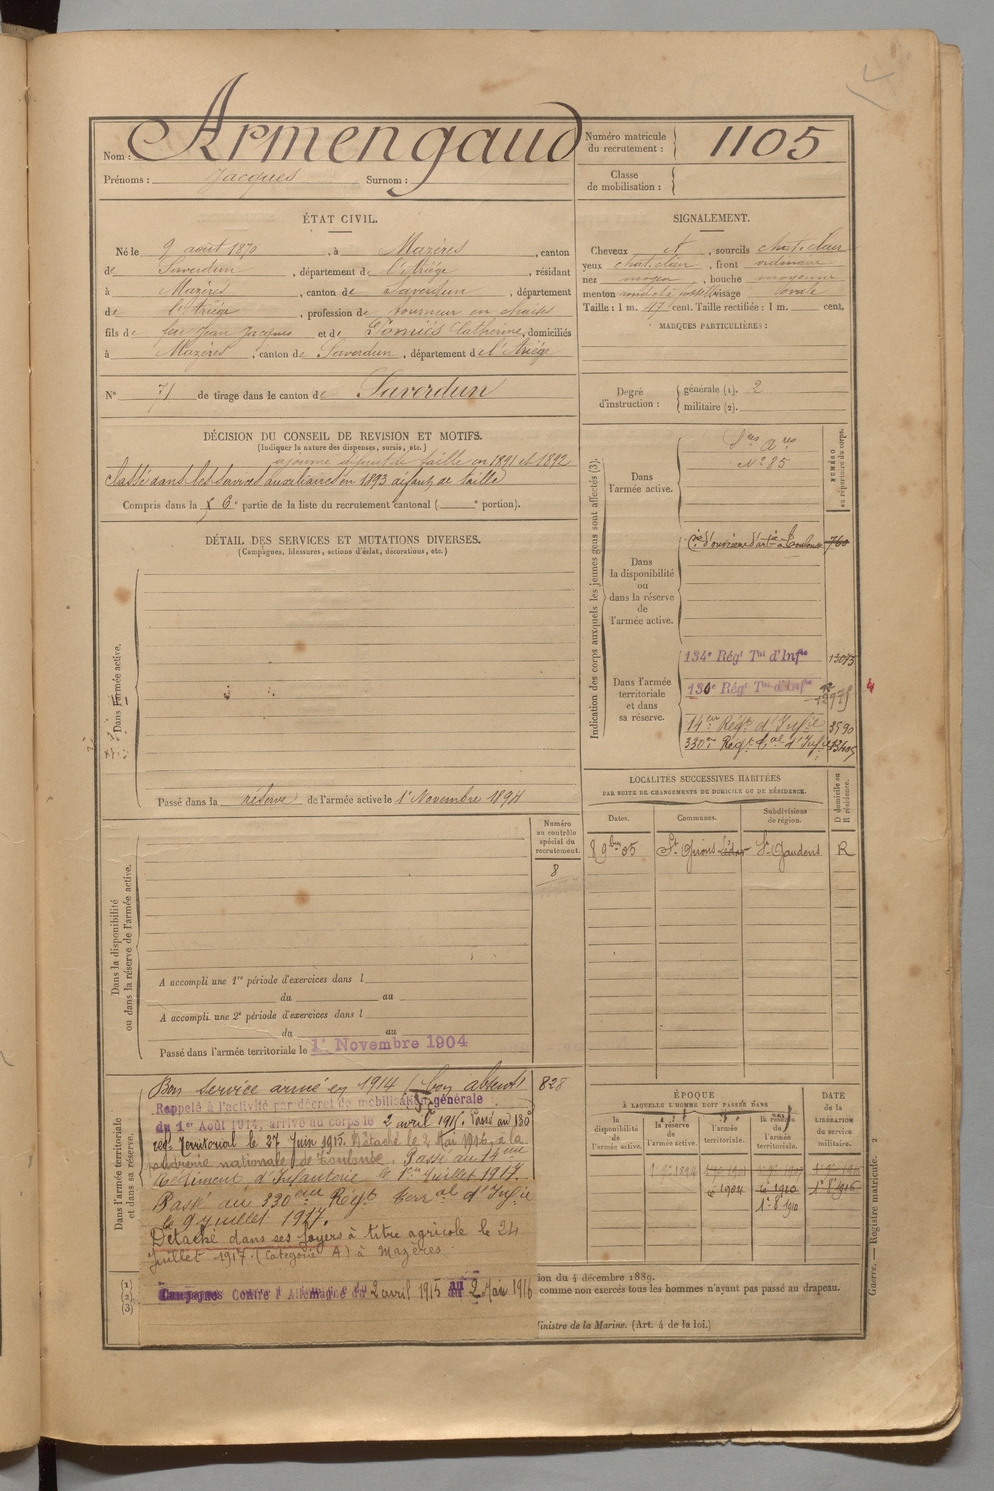 Nom : Armengaud
Prénoms : Jacques Surnom :
Numéro matricule du recrutement : 1105
Classe de mobilisation :
ÉTAT CIVIL.
Né le 9 août 1870, à Mazères, canton
de Saverdun, département de l'Ariège, résidant
à Mazères, canton de Saverdun, département
de l'Ariège, profession de tourneur en chaises
fils de feu Jean Jacques et de Comiès Catherine, domiciliés
à Mazères, canton de Saverdun, département de l'Ariège
N° 71 de tirage dans le canton de Saverdun
DÉCISION DU CONSEIL DE REVISION ET MOTIFS.
(Indiquer la nature des dispenses, sursis, etc.)
ajourné défaut de taille en 1891 et 1892
Classé dans les services auxiliaires en 1893 défaut de taille
Compris dans la 6e partie de la liste du recrutement cantonal ( e portion).
DÉTAIL DES SERVICES ET MUTATIONS DIVERSES.
(Campagnes, blessures, actions d'éclat, décorations, etc.)
Dans l'armée active.
Passé dans la réserve de l'armée active le 1er Novembre 1894
Numéro au contrôle spécial du recrutement.
8
Dans la disponibilité ou dans la réserve de l'armée active.
A accompli une 1re période d'exercices dans l
du au
A accompli une 2e période d'exercices dans l
du au
Passé dans l'armée territoriale le 1er Novembre 1904
Dans l'armée territoriale et dans sa réserve.
Bon service armé en 1914 (bon absent) 828
Rappelé à l'activité par décret de mobilisation générale
du 1er Août 1914, arrivé au corps le 2 avril 1915. Passé au 130e
rég. Territorial le 27 Juin 1915. Détaché le 2 Mai 1916, à la
poudrerie nationale de Toulouse. Passé au 14eme
Régiment d'Infanterie le 1er Juillet 1917.
Passé au 330eme Régt terral d'Infie
le 9 juillet 1917.
Détaché dans ses foyers à titre agricole le 24
Juillet 1917. (Catégorie A) à Mazères.
Campagnes Contre l'Allemagne du 2 avril 1915 au 2 Mai 1916
(1)
(2)
(3)
ion du 4 décembre 1889.
comme non exercés tous les hommes n'ayant pas passé au drapeau.
inistre de la Marine. (Art. 4 de la loi.)
SIGNALEMENT.
Cheveux et, sourcils chat. clair
yeux chat. clair, front ordinaire
nez moyen, bouche moyenne
menton rond à fossette visage ovale
Taille : 1 m. 47 cent. Taille rectifiée : 1 m. cent.
MARQUES PARTICULIÈRES :
Degré d'instruction : générale (1). 2
militaire (2).
Indication des corps auxquels les jeunes gens sont affectés (3).
NUMÉRO au répertoire du corps.
Dans l'armée active.
Sces Ares
N° 85
Dans la disponibilité ou dans la réserve de l'armée active.
Cie d'ouvriers d'artie à Toulouse 760
Dans l'armée territoriale et dans sa réserve.
134e Régt Tal d'Infie 13075
130e Régt Tal d'Infie
14eme Régt d'Infie 3590
330eme Régt tal d'Infie
LOCALITÉS SUCCESSIVES HABITÉES
PAR SUITE DE CHANGEMENTS DE DOMICILE OU DE RÉSIDENCE.
Dates. Communes. Subdivisions de région. D domicile ou R résidence.
8 9bre 05 St Girons St Gaudens R
ÉPOQUE
À LAQUELLE L'HOMME DOIT PASSER DANS
la disponibilité de l'armée active.
la réserve de l'armée active.
l'armée territoriale.
la réserve de l'armée territoriale.
DATE de la LIBÉRATION du service militaire.
1er 9bre 1894
1904 1910
1er 8 1910
Guerre. — Registre matricule. 2